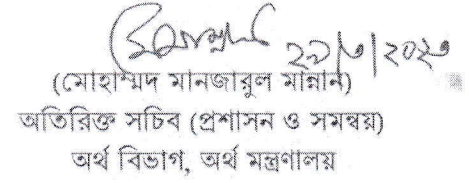 ২৯/৩/২০২৩
(মোহাম্মদ মানজারুল মান্নান)
অতিরিক্ত সচিব (প্রশাসন ও সমন্বয়)
অর্থ বিভাগ, অর্থ মন্ত্রণালয়